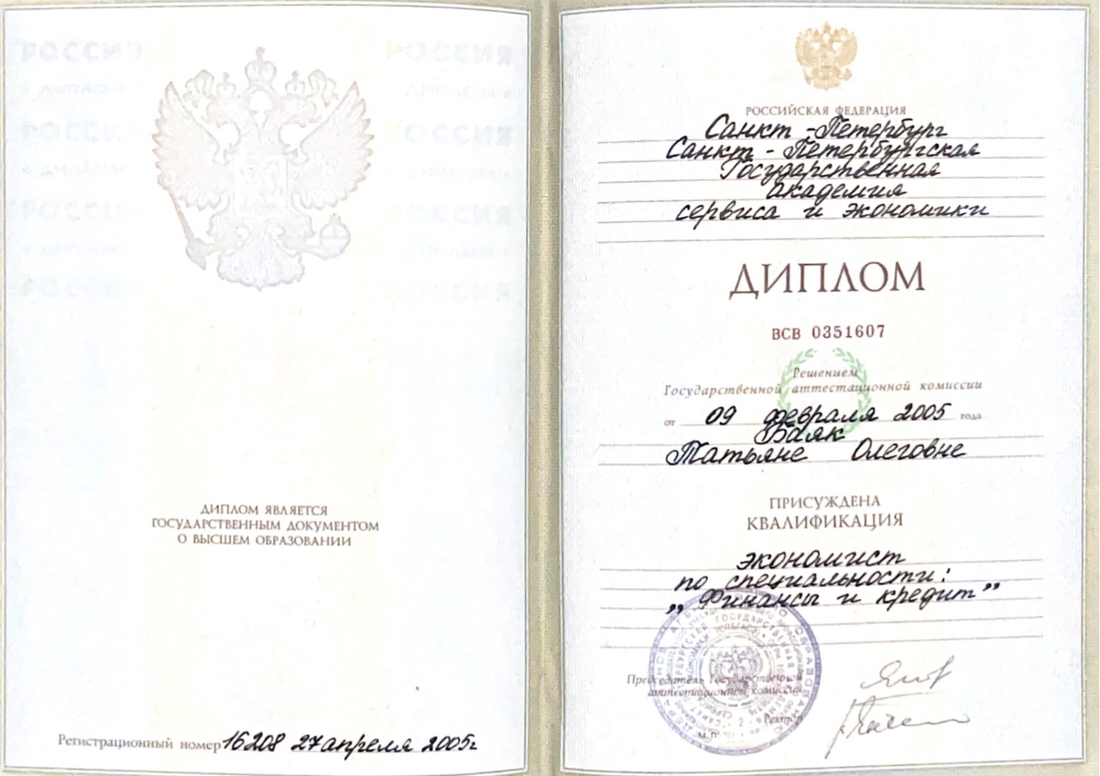 ДИПЛОМ ЯВЛЯЕТСЯ
ГОСУДАРСТВЕННЫМ ДОКУМЕНТОМ
О ВЫСШЕМ ОБРАЗОВАНИИ
Регистрационный номер 16208 27 апреля 2005г
РОССИЙСКАЯ ФЕДЕРАЦИЯ
Санкт-Петербург
Санкт-Петербургская
Государственная
академия
сервиса и экономики
ДИПЛОМ
ВСВ 0351607
Решением
Государственной аттестационной комиссии
от 09 февраля 2005 года
Баяк
Татьяне Олеговне
ПРИСУЖДЕНА
КВАЛИФИКАЦИЯ
экономист
по специальности:
„Финансы и кредит”
Председатель Государственной
аттестационной комиссии
Ректор
М.П.